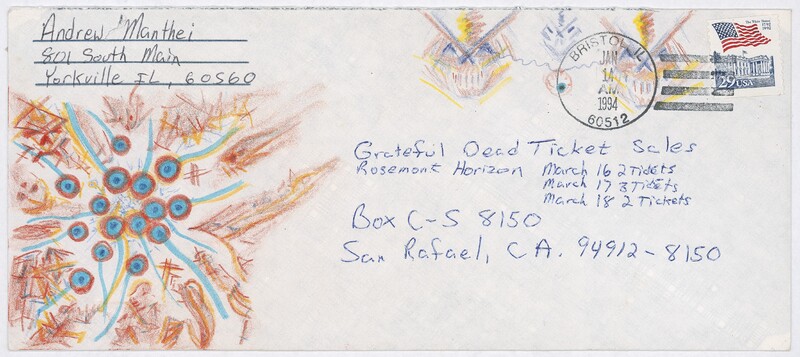 Andrew Manthei
801 South Main
Yorkville IL, 60560
BRISTOL, IL
JAN
14
A.M.
1994
60512
The White House
1792 1992
29 USA
Grateful Dead Ticket Sales
Rosemont Horizon March 16 2 Tickets
March 17 3 Tickets
March 18 2 Tickets
Box C-S 8150
San Rafael, CA. 94912-8150